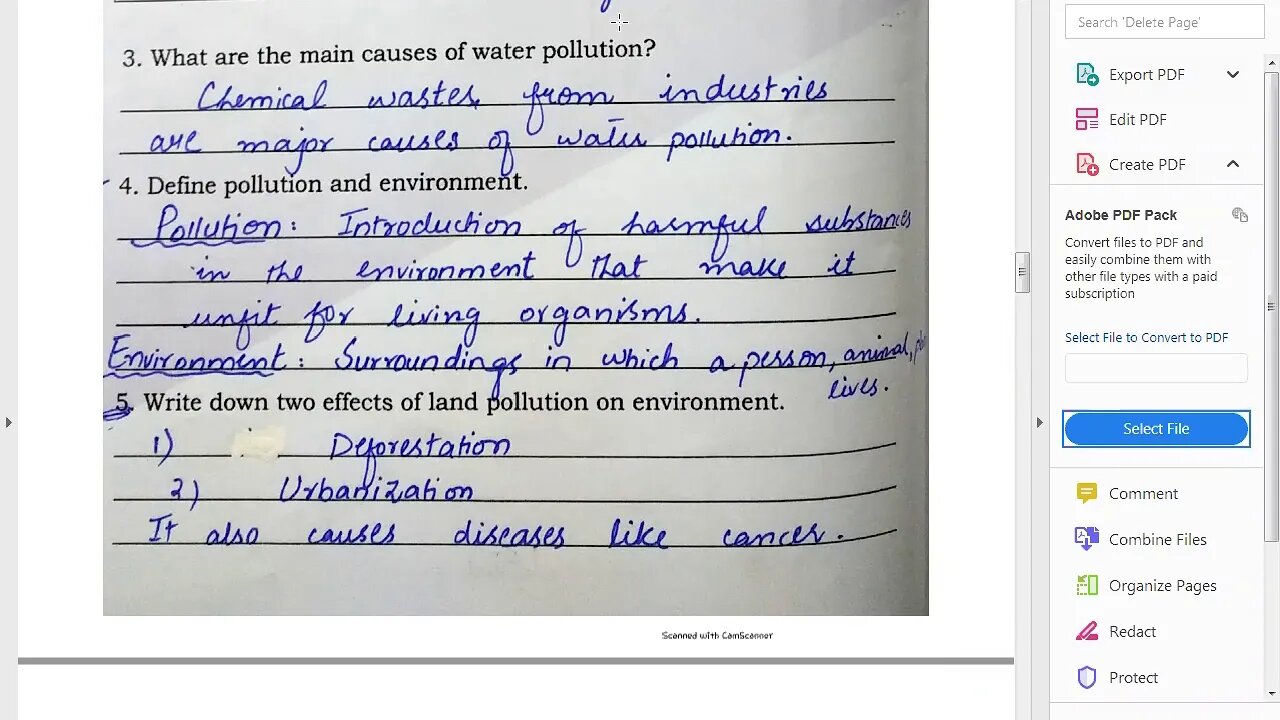 3. What are the main causes of water pollution?
Chemical wastes from industries
are major causes of water pollution.
4. Define pollution and environment.
Pollution: Introduction of harmful substances
in the environment that make it
unfit for living organisms.
Environment: Surroundings in which a person, animal,
lives.
5. Write down two effects of land pollution on environment.
1) Deforestation
2) Urbanization
It also causes diseases like cancer.
Scanned with CamScanner
Search 'Delete Page'
Export PDF
Edit PDF
Create PDF
Adobe PDF Pack
Convert files to PDF and
easily combine them with
other file types with a paid
subscription
Select File to Convert to PDF
Select File
Comment
Combine Files
Organize Pages
Redact
Protect